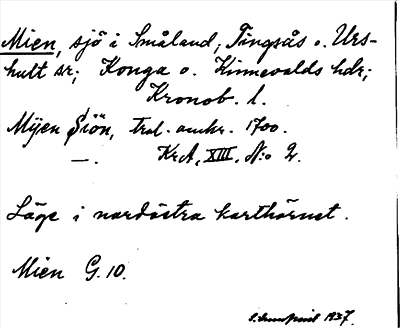 Mien, sjö i Småland; Tingsås o. Urs-
hult sr; Konga o. Kinnevalds hdr;
Kronob. l.
Mijen Siön, trol. omkr. 1700.
—. KrA, XIII, N:o 2.
Läge i nordöstra karthörnet.
Mien G. 10.
1937.